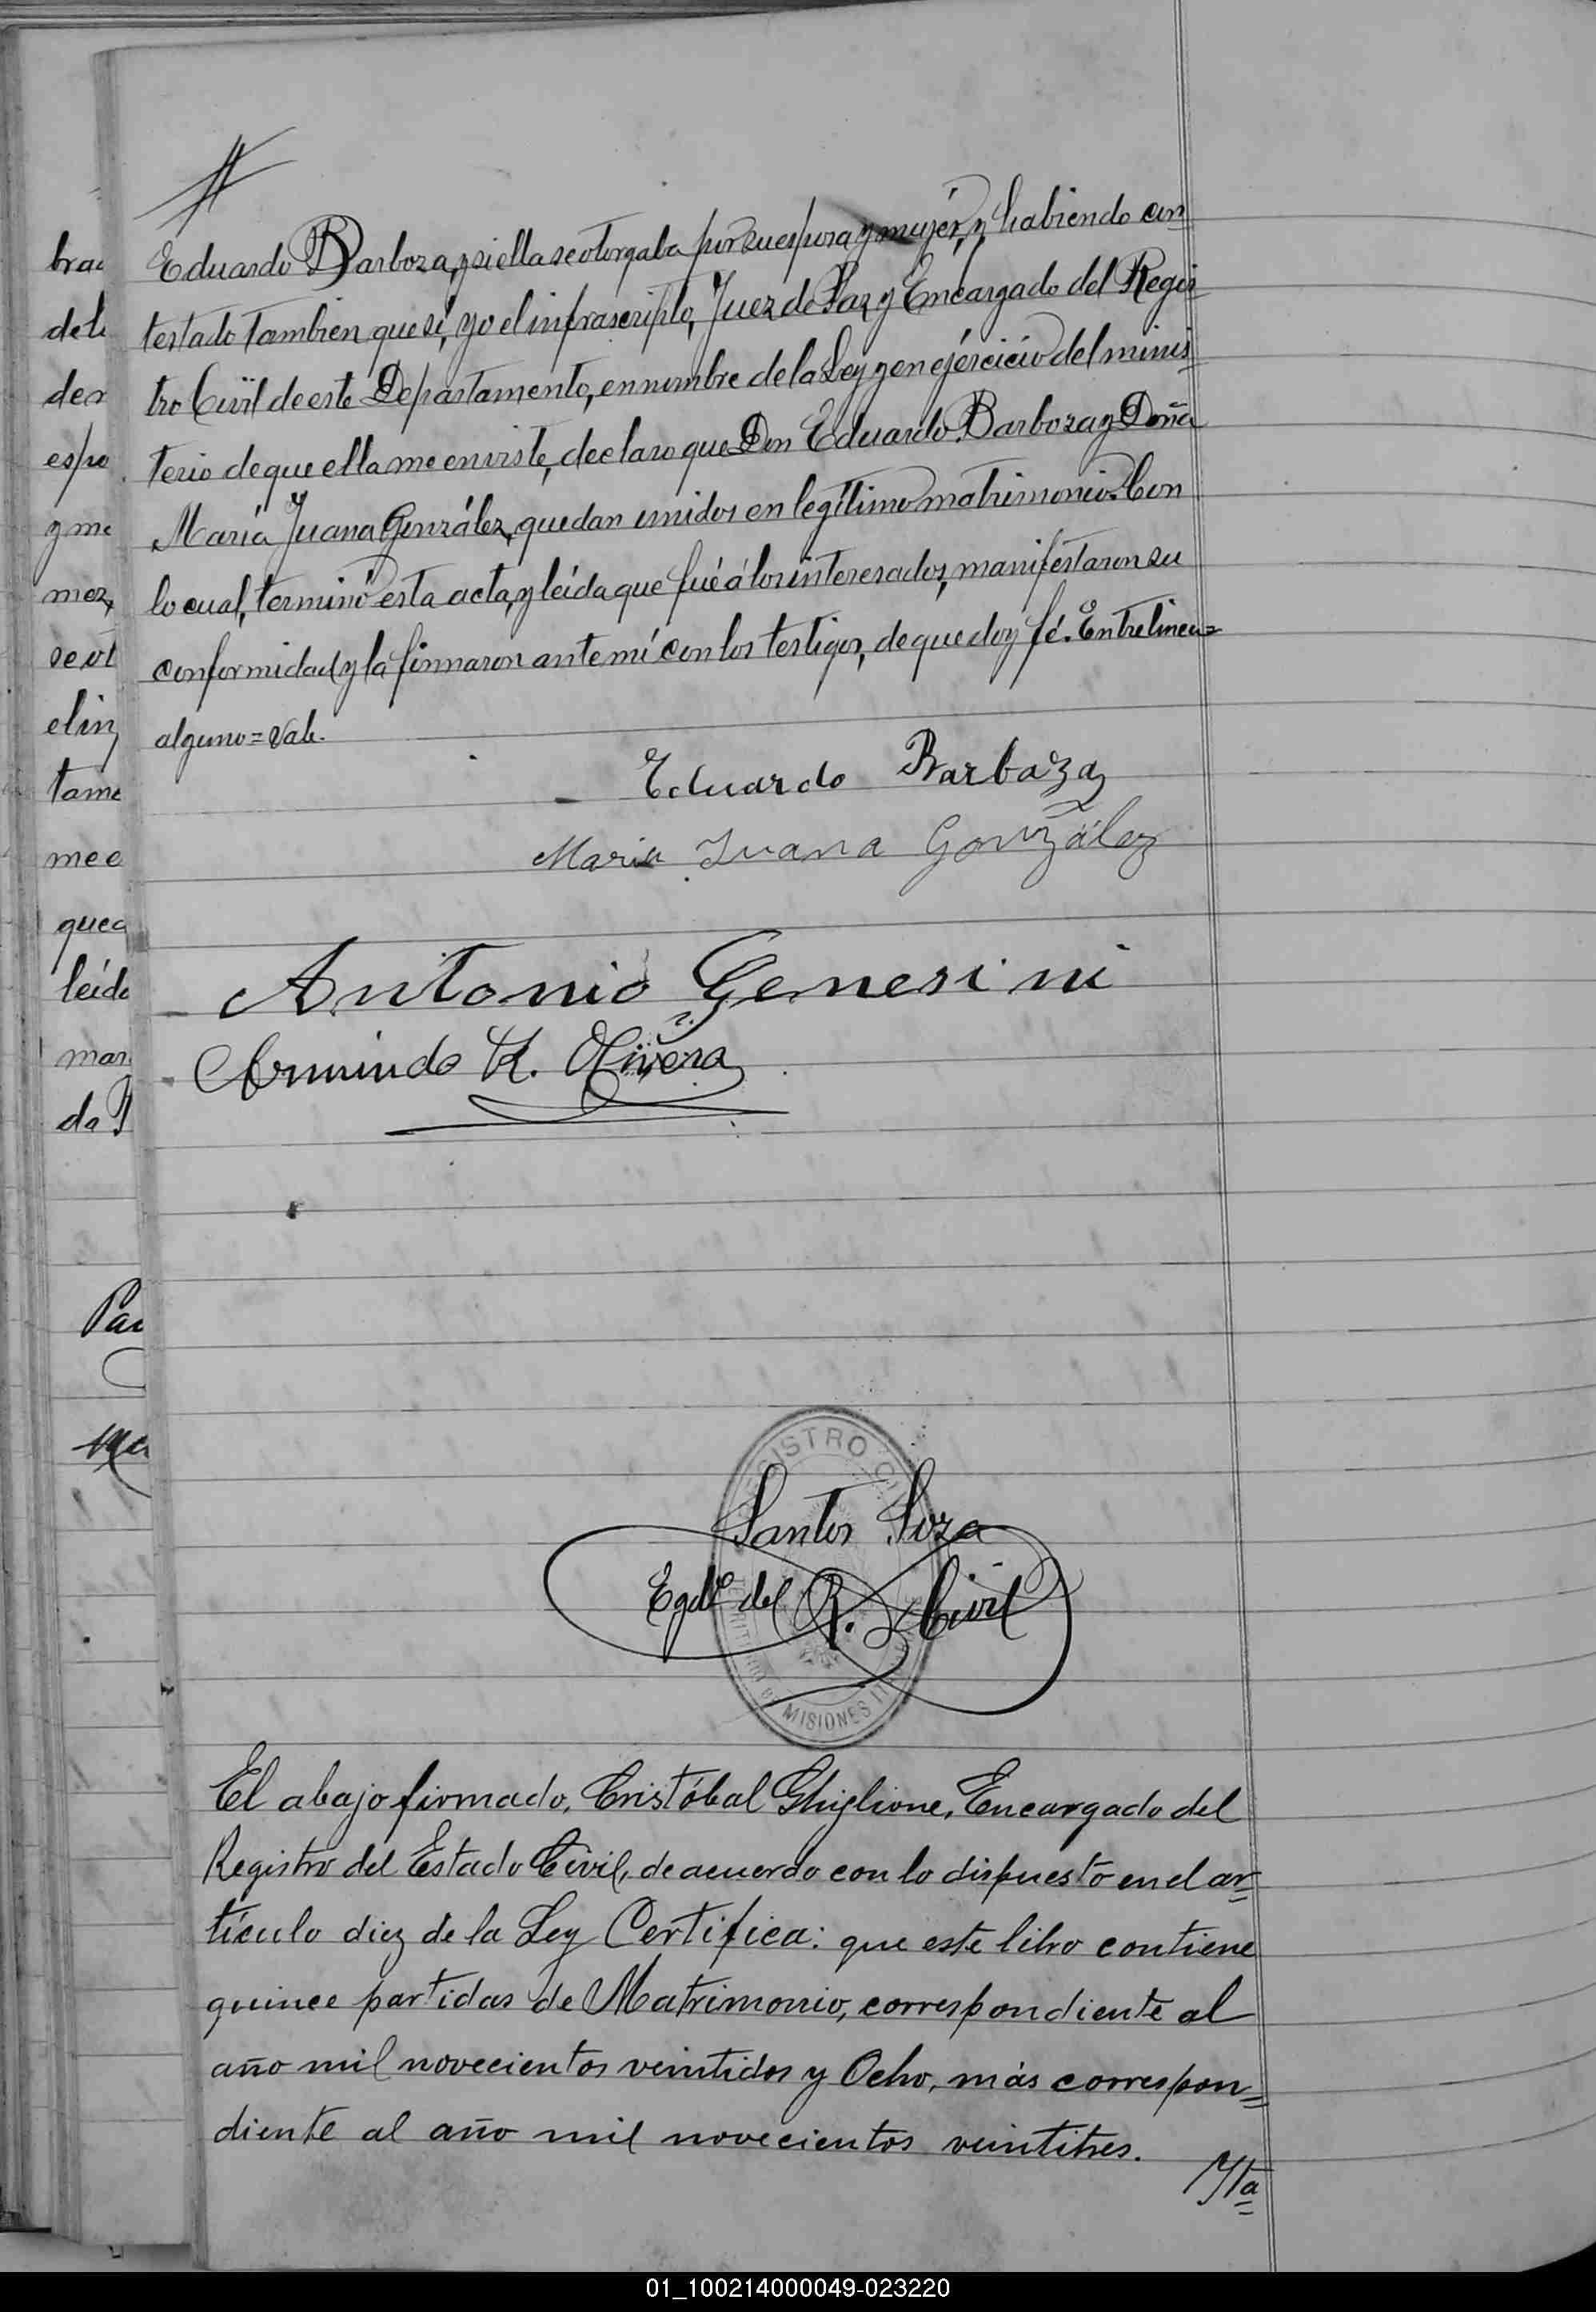 Eduardo Barboza, y si ella se otorgaba por su esposa y mujér, y habiendo con
testado tambien que sí, yo el infrascripto, Juez de Paz y Encargado del Regis
tro Civil de este Departamento, en nombre de la Ley y en ejércicio del minis
terio de que ella me enviste, declaro que Don Eduardo Barboza y Doña
María Juana González, quedan unidos en legítimo matrimonio. Con
lo cual, terminó esta acta, y leída que fué á los interesados, manifestaron su
conformidad y la firmaron ante mí con los testigos, de que doy fé. Entrelinea=
alguno=Vale.
Eduardo Barboza
Maria Juana González
Antonio Genesini
Armindo R. Olivera
REGISTRO CIVIL
Santos Soza
Egdo del R. Civil
TERRITORIO DE MISIONES
El abajo firmado, Cristóbal Ghiglione, Encargado del
Registro del Estado Civil, de acuerdo con lo dispuesto en el ar=
tículo diez de la Ley Certifica: que este libro contiene
quince partidas de Matrimonio, correspondiente al
año mil novecientos veintidos y Ocho, más correspon=
diente al año mil novecientos veintitres.
brac
espo
y me
mez,
se ot
tame
me e
quec
leída
01_100214000049-023220